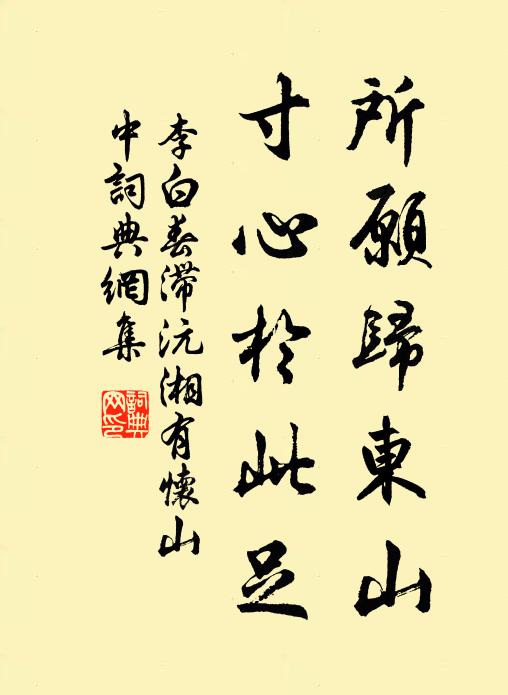 所願歸東山
寸心於此足
李白春滯沅湘有懷山
中詞典網集
詞典
网印